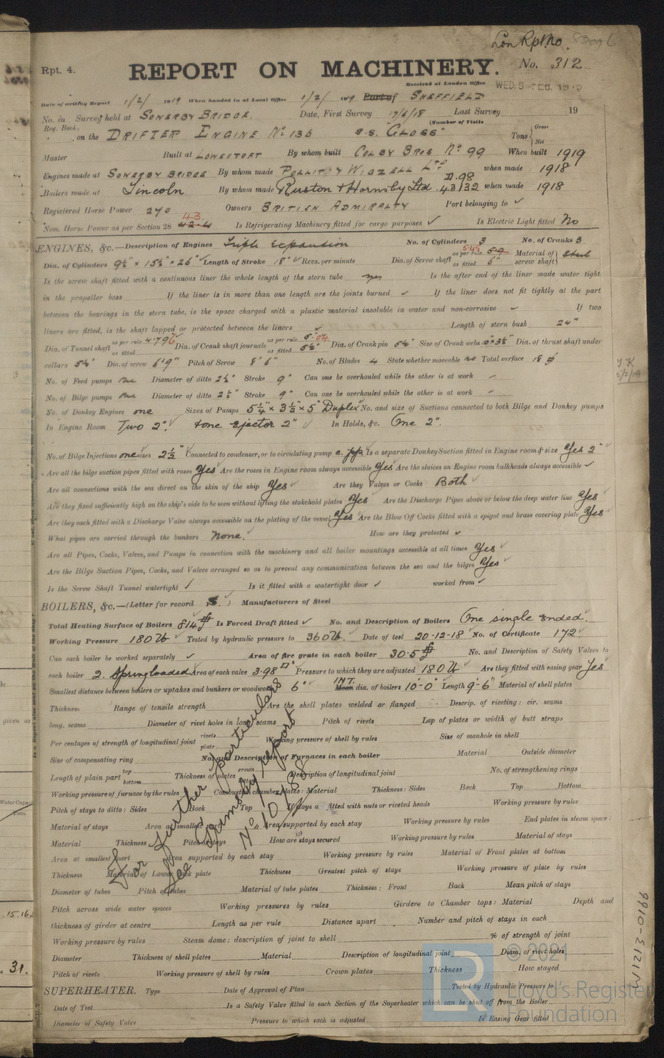 Lon Rpt No. 80096
Rpt. 4. REPORT ON MACHINERY. No. 312
Received at London Office WED. 5 FEB. 1919
Date of writing Report 1/2/ 1919 When handed in at Local Office 1/2/ 1919 Port of SHEFFIELD
No. in Survey held at SOWERBY BRIDGE. Date, First Survey 17/6/18 Last Survey 19
Reg. Book. (Number of Visits
on the DRIFTER ENGINE No 136 S.S. GLOSS Tons Gross Net
Master Built at LOWESTOFT By whom built COLBY BROS No 99 When built 1919
Engines made at SOWERBY BRIDGE By whom made POLLIT & WIGZELL LTD when made 1918
Boilers made at Lincoln By whom made Ruston & Hornsby Ltd. when made 1918
Registered Horse Power 270 Owners BRITISH ADMIRALTY Port belonging to ✓
Nom. Horse Power as per Section 28 43 Is Refrigerating Machinery fitted for cargo purposes ✓ Is Electric Light fitted No
ENGINES, &c.—Description of Engines Triple expansion No. of Cylinders 3 No. of Cranks 3
Dia. of Cylinders 9½" × 15½" × 26" Length of Stroke 18" Revs. per minute Dia. of Screw shaft as per rule as fitted 6" Material of screw shaft Steel
Is the screw shaft fitted with a continuous liner the whole length of the stern tube yes Is the after end of the liner made water tight
in the propeller boss If the liner is in more than one length are the joints burned ✓ If the liner does not fit tightly at the part
between the bearings in the stern tube, is the space charged with a plastic material insoluble in water and non-corrosive ✓ If two
liners are fitted, is the shaft lapped or protected between the liners ✓ Length of stern bush 24"
Dia. of Tunnel shaft as per rule 4.796 as fitted Dia. of Crank shaft journals as per rule 5.04 as fitted 5½" Dia. of Crank pin 5½" Size of Crank webs Dia. of thrust shaft under
collars 5½" Dia. of screw 6'9" Pitch of Screw 8'6" No. of Blades 4 State whether moveable no Total surface 18
No. of Feed pumps one Diameter of ditto 2½" Stroke 9" Can one be overhauled while the other is at work ✓
No. of Bilge pumps one Diameter of ditto 2½" Stroke 9" Can one be overhauled while the other is at work ✓
No. of Donkey Engines one Sizes of Pumps 5¼" × 3½" × 5" Duplex No. and size of Suctions connected to both Bilge and Donkey pumps
In Engine Room Two 2" & one ejector 2" In Holds, &c. One 2".
No. of Bilge Injections one sizes 2½" Connected to condenser, or to circulating pump Is a separate Donkey Suction fitted in Engine room & size Yes 2"
Are all the bilge suction pipes fitted with roses Yes Are the roses in Engine room always accessible Yes Are the sluices on Engine room bulkheads always accessible ✓
Are all connections with the sea direct on the skin of the ship Yes Are they Valves or Cocks Both
Are they fixed sufficiently high on the ship's side to be seen without lifting the stokehold plates Yes Are the Discharge Pipes above or below the deep water line Yes
Are they each fitted with a Discharge Valve always accessible on the plating of the vessel Yes Are the Blow Off Cocks fitted with a spigot and brass covering plate Yes
What pipes are carried through the bunkers None. How are they protected ✓
Are all Pipes, Cocks, Valves, and Pumps in connection with the machinery and all boiler mountings accessible at all times Yes
Are the Bilge Suction Pipes, Cocks, and Valves arranged so as to prevent any communication between the sea and the bilges Yes
Is the Screw Shaft Tunnel watertight ✓ Is it fitted with a watertight door ✓ worked from ✓
BOILERS, &c.—(Letter for record S.) Manufacturers of Steel
Total Heating Surface of Boilers 814 Is Forced Draft fitted ✓ No. and Description of Boilers One single ended.
Working Pressure 180 lb Tested by hydraulic pressure to 360 lb Date of test 20-12-18 No. of Certificate 172
Can each boiler be worked separately ✓ Area of fire grate in each boiler 30.5 No. and Description of Safety Valves to
each boiler 2. Spring loaded Area of each valve 3.98 Pressure to which they are adjusted 180 lb Are they fitted with easing gear Yes
Smallest distance between boilers or uptakes and bunkers or woodwork 6" INT. dia. of boilers 10'-0" Length 9'-6" Material of shell plates
Thickness Range of tensile strength Are the shell plates welded or flanged Descrip. of riveting: cir. seams
long. seams Diameter of rivet holes in long. seams Pitch of rivets Lap of plates or width of butt straps
Per centages of strength of longitudinal joint rivets plate Working pressure of shell by rules Size of manhole in shell
Size of compensating ring No. and Description of Furnaces in each boiler Material Outside diameter
Length of plain part top bottom Thickness of plates crown Description of longitudinal joint No. of strengthening rings
Working pressure of furnace by the rules Combustion chamber plates: Material Thickness: Sides Back Top Bottom
Pitch of stays to ditto: Sides Back Top If stays are fitted with nuts or riveted heads Working pressure by rules
Material of stays Area at smallest part Area supported by each stay Working pressure by rules End plates in steam space:
Material Thickness Pitch of stays How are stays secured Working pressure by rules Material of stays
Area at smallest part Area supported by each stay Working pressure by rules Material of Front plates at bottom
Thickness Material of Lower back plate Thickness Greatest pitch of stays Working pressure of plate by rules
Diameter of tubes Pitch of tubes Material of tube plates Thickness: Front Back Mean pitch of stays
Pitch across wide water spaces Working pressures by rules Girders to Chamber tops: Material Depth and
thickness of girder at centre Length as per rule Distance apart Number and pitch of stays in each
Working pressure by rules Steam dome: description of joint to shell % of strength of joint
Diameter Thickness of shell plates Material Description of longitudinal joint Diam. of rivet holes
Pitch of rivets Working pressure of shell by rules Crown plates Thickness How stayed
SUPERHEATER. Type Date of Approval of Plan Tested by Hydraulic Pressure to
Date of Test Is a Safety Valve fitted to each Section of the Superheater which can be shut off from the Boiler
Diameter of Safety Valve Pressure to which each is adjusted Is Easing Gear fitted
For further particulars
See Grimsby report
No 10188
W1213-0166
© 2021
Lloyd's Register
Foundation
15.16.
31.